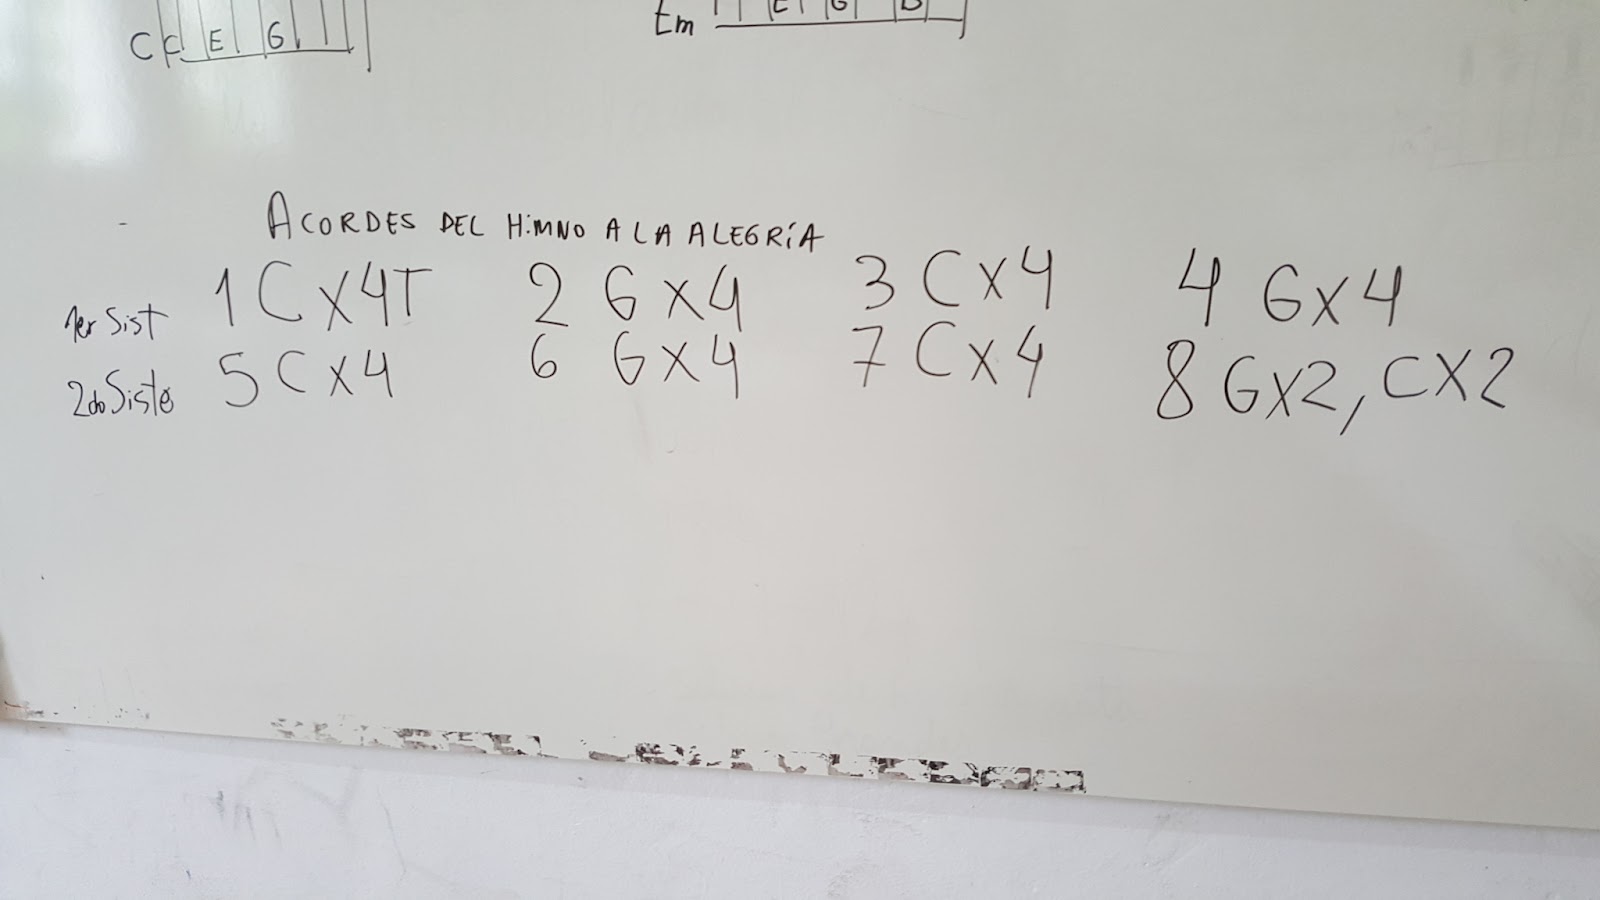 C C E G
Em E G B
ACORDES DEL HiMNO A LA ALEGRíA
1er Sist 1 C X 4T 2 G X 4 3 C X 4 4 G X 4
2do Siste 5 C X 4 6 G X 4 7 C X 4 8 G X 2, C X 2